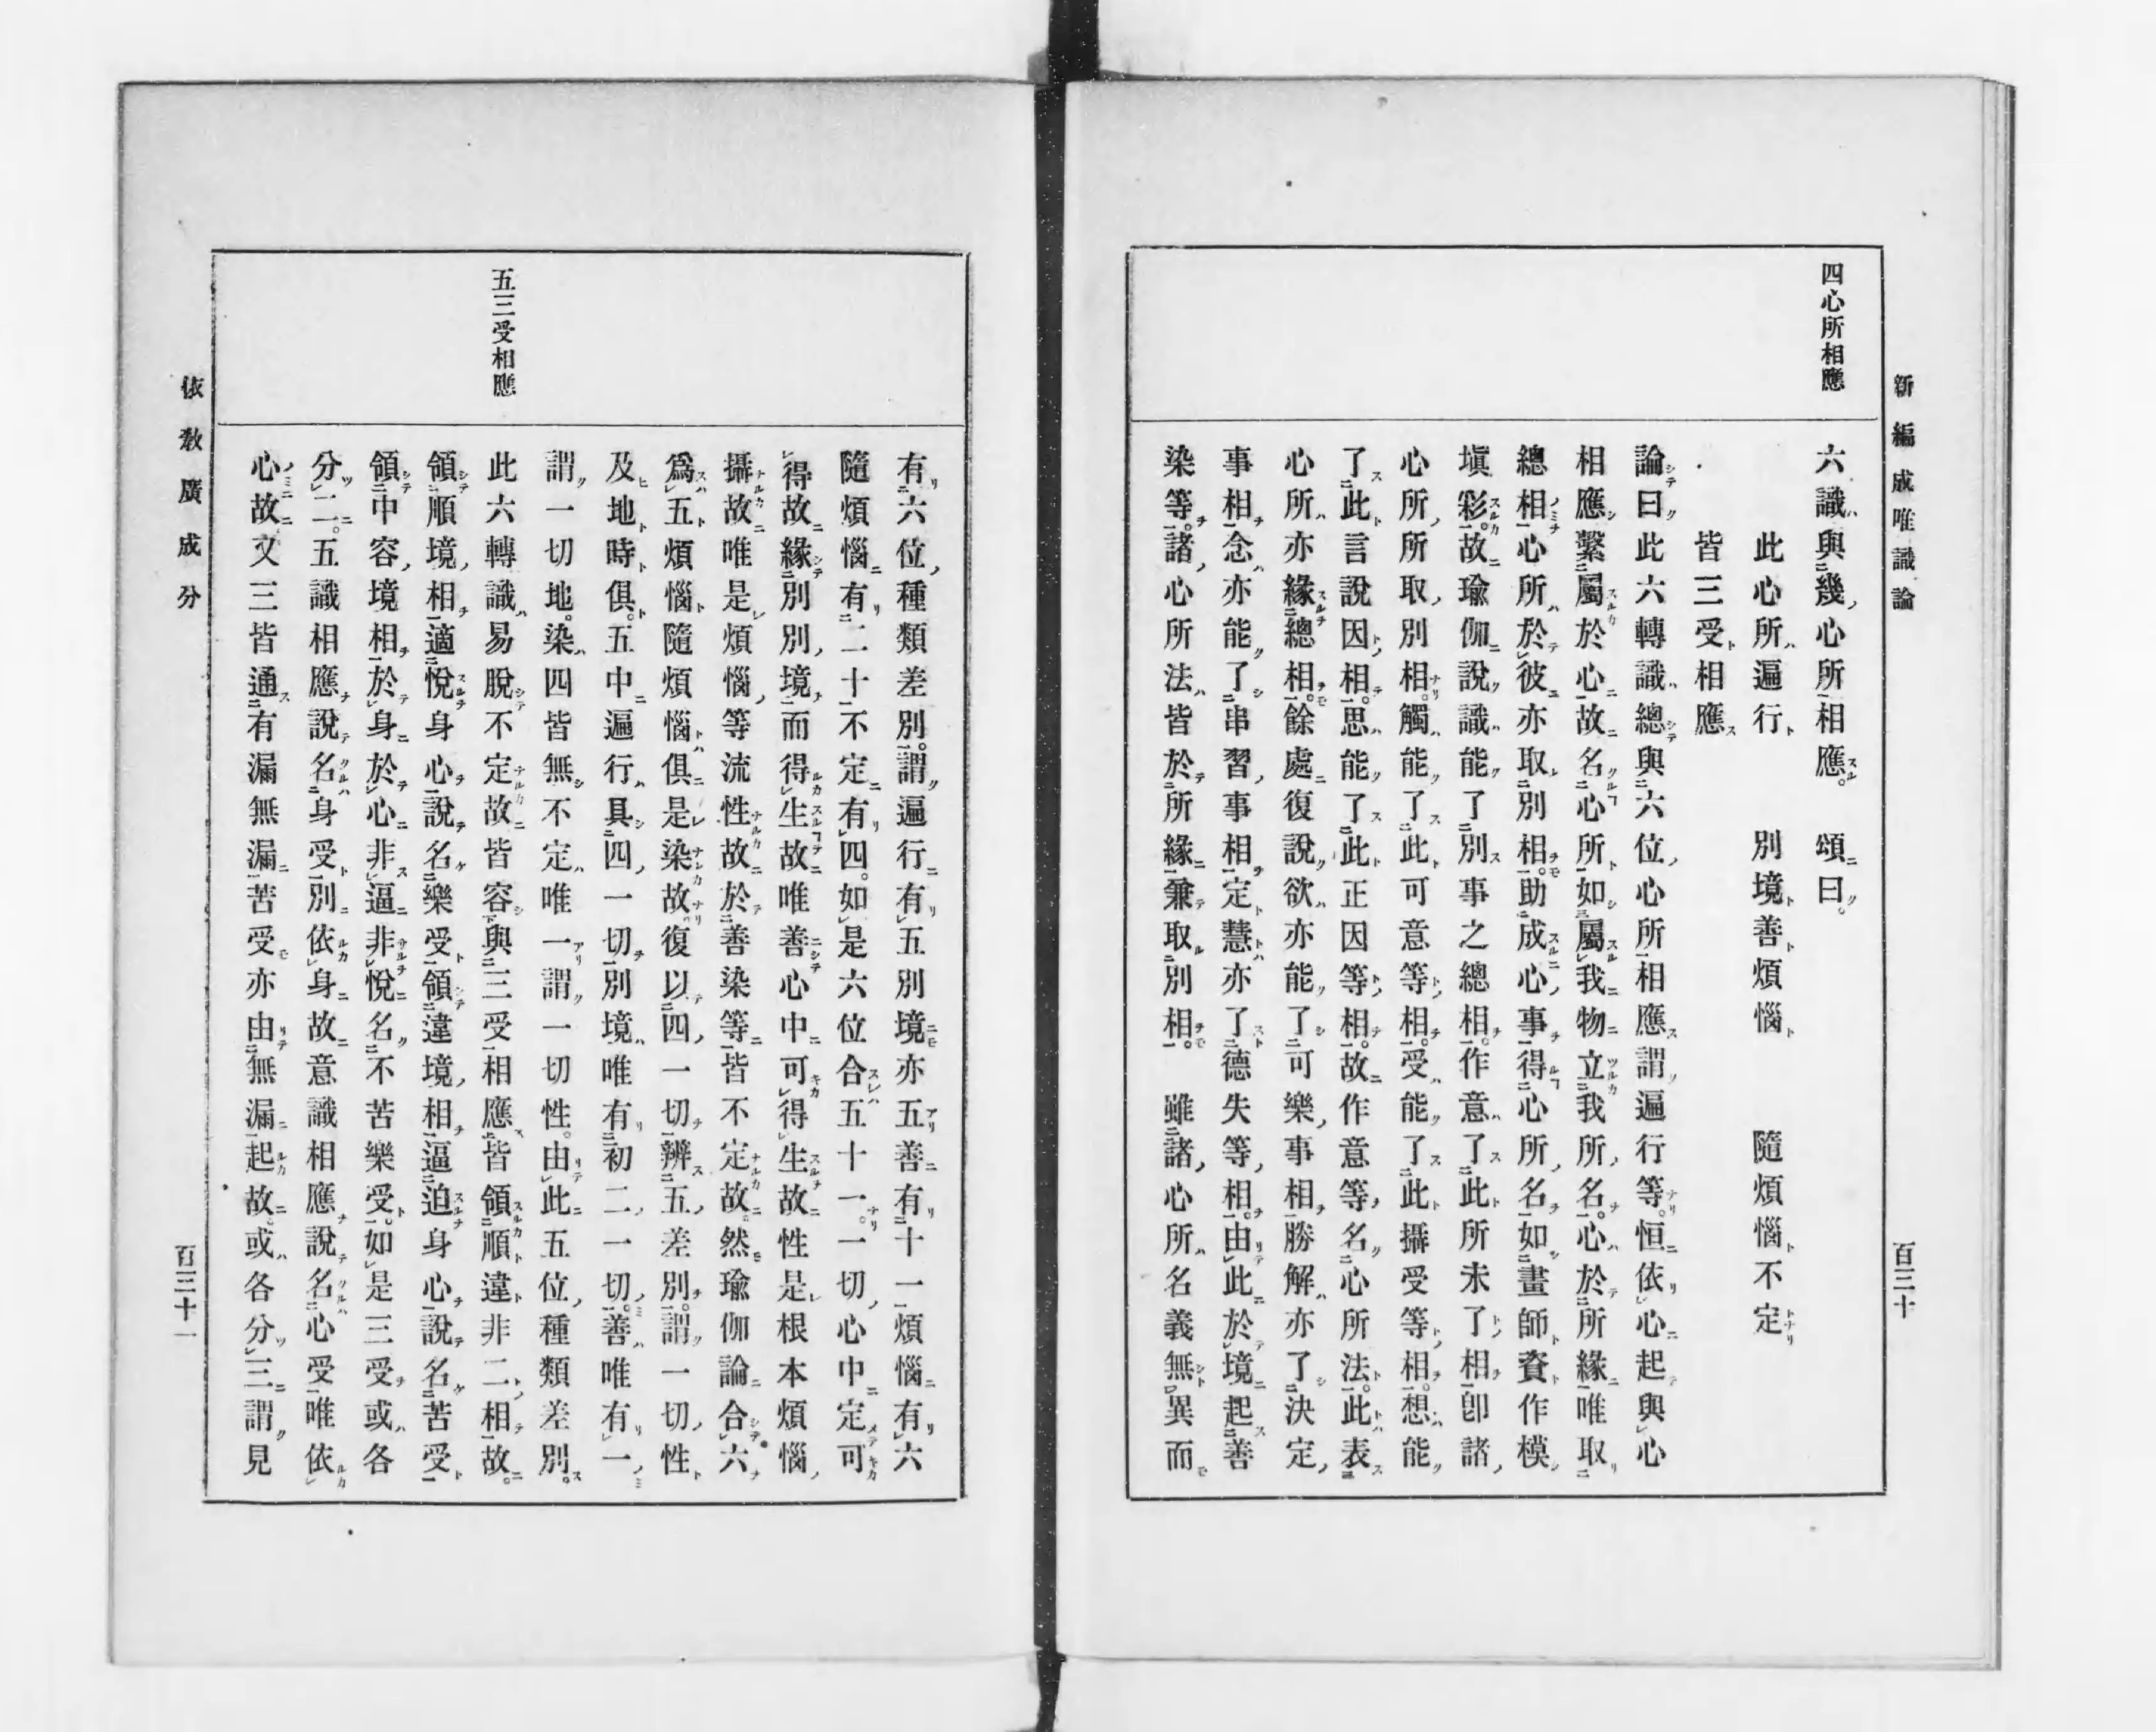 新編成唯識論
百三十
四心所相應
六識與幾心所相應。頌曰。
此心所遍行　別境善煩惱　隨煩惱不定
皆三受相應
論曰此六轉識總與六位心所相應謂遍行等。恒依心起與心
相應繫屬於心故名心所如屬我物立我所名。心於所緣唯取
總相心所於彼亦取別相。助成心事得心所名如畫師資作模
塡彩。故瑜伽說識能了別事之總相。作意了此所未了相卽諸
心所所取別相。觸能了此可意等相。受能了此攝受等相。想能
了此言說因相。思能了此正因等相。故作意等名心所法。此表
心所亦緣總相。餘處復說欲亦能了可樂事相勝解亦了決定
事相念亦能了串習事相定慧亦了德失等相。由此於境起善
染等。諸心所法皆於所緣兼取別相。雖諸心所名義無異而
有六位種類差別。謂遍行有五別境亦五善有十一煩惱有六
隨煩惱有二十不定有四。如是六位合五十一。一切心中定可
得故緣別別境而得生故唯善心中可得生故性是根本煩惱
攝故唯是煩惱等流性故於善染等皆不定故。然瑜伽論合六
爲五煩惱隨煩惱俱是染故復以四一切辨五差別。謂一切性
及地時俱。五中遍行具四一切別境唯有初二一切。善唯有一
謂一切地。染四皆無不定唯一謂一切性。由此五位種類差別。
五三受相應
此六轉識易脫不定故皆容與三受相應皆領順違非二相故。
領順境相適悅身心說名樂受領違境相逼迫身心說名苦受
領中容境相於身於心非逼非悅名不苦樂受。如是三受或各
分二。五識相應說名身受別依身故意識相應說名心受唯依
心故又三皆通有漏無漏苦受亦由無漏起故。或各分三謂見
依教廣成分
百三十一